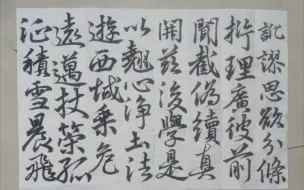 訛謬思欲分條
析理廣彼前
聞截偽續真
開茲後學是
以翹心淨土法
遊西域乘危
遠邁杖策孤
征積雪晨飛